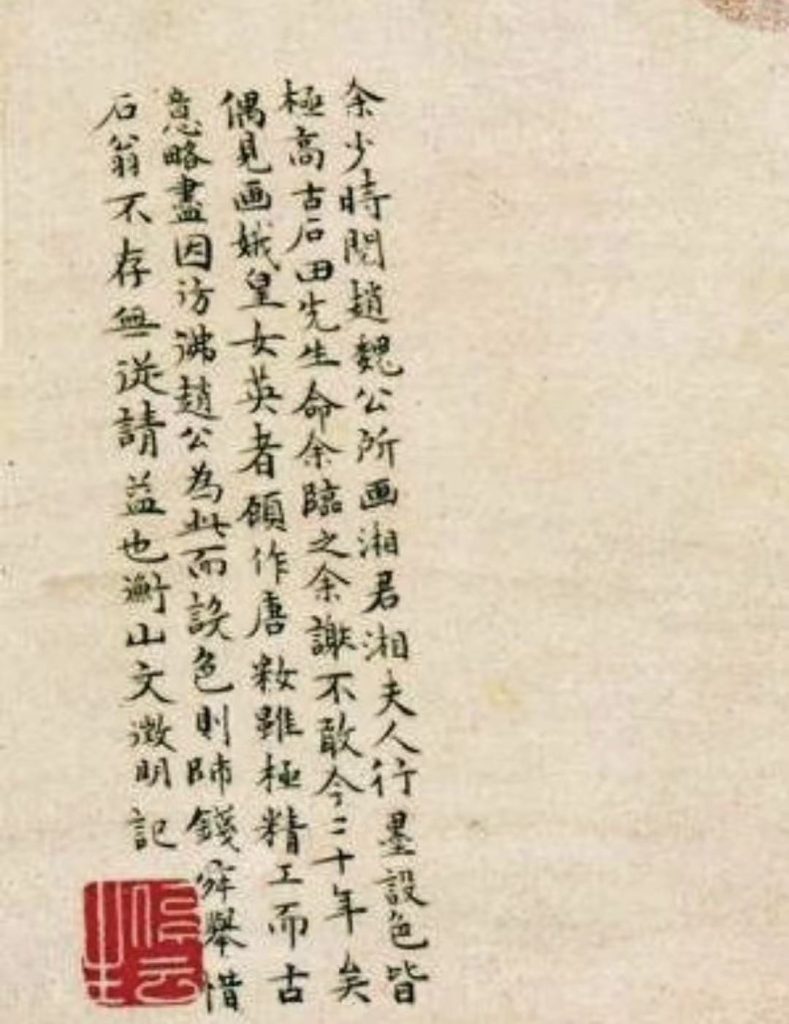 余少時閱趙魏公所画湘君湘夫人行墨設色皆
極高古石田先生命余臨之余謝不敢今二十年矣
偶見画娥皇女英者顧作唐粧雖極精工而古
意略盡因彷彿趙公為此而設色則師錢舜舉惜
石翁不存無從請益也衡山文徵明記
停雲生